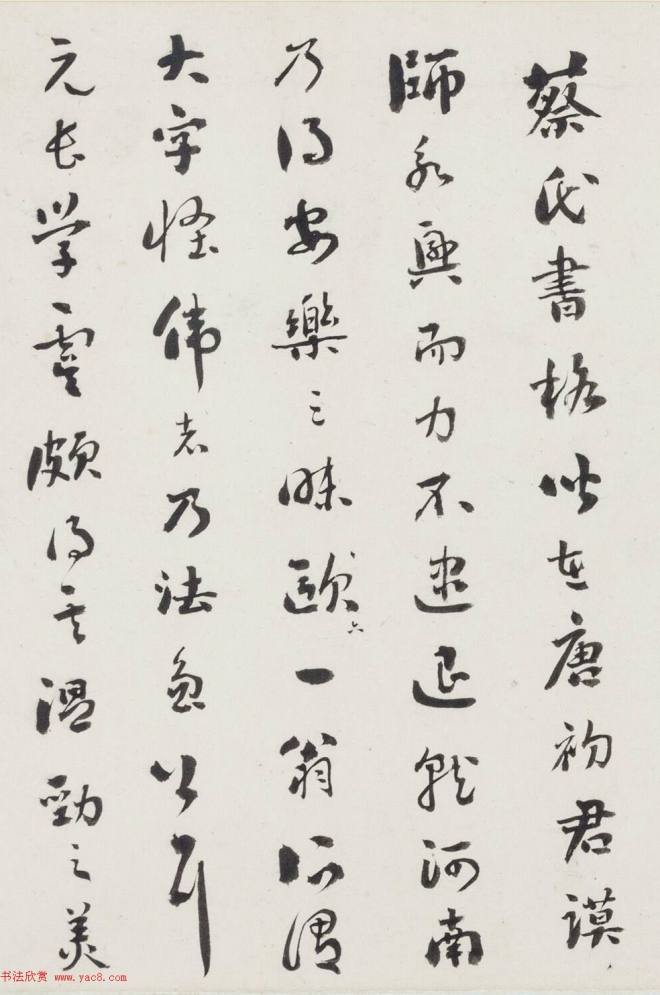 蔡氏書格皆在唐初君謨
師永興而力不逮退就河南
乃得安樂之味歐六一翁所謂
大字怪偉者乃法魯公耳
元長學虞頗得其溫勁之美
书法欣赏 www.yac8.com